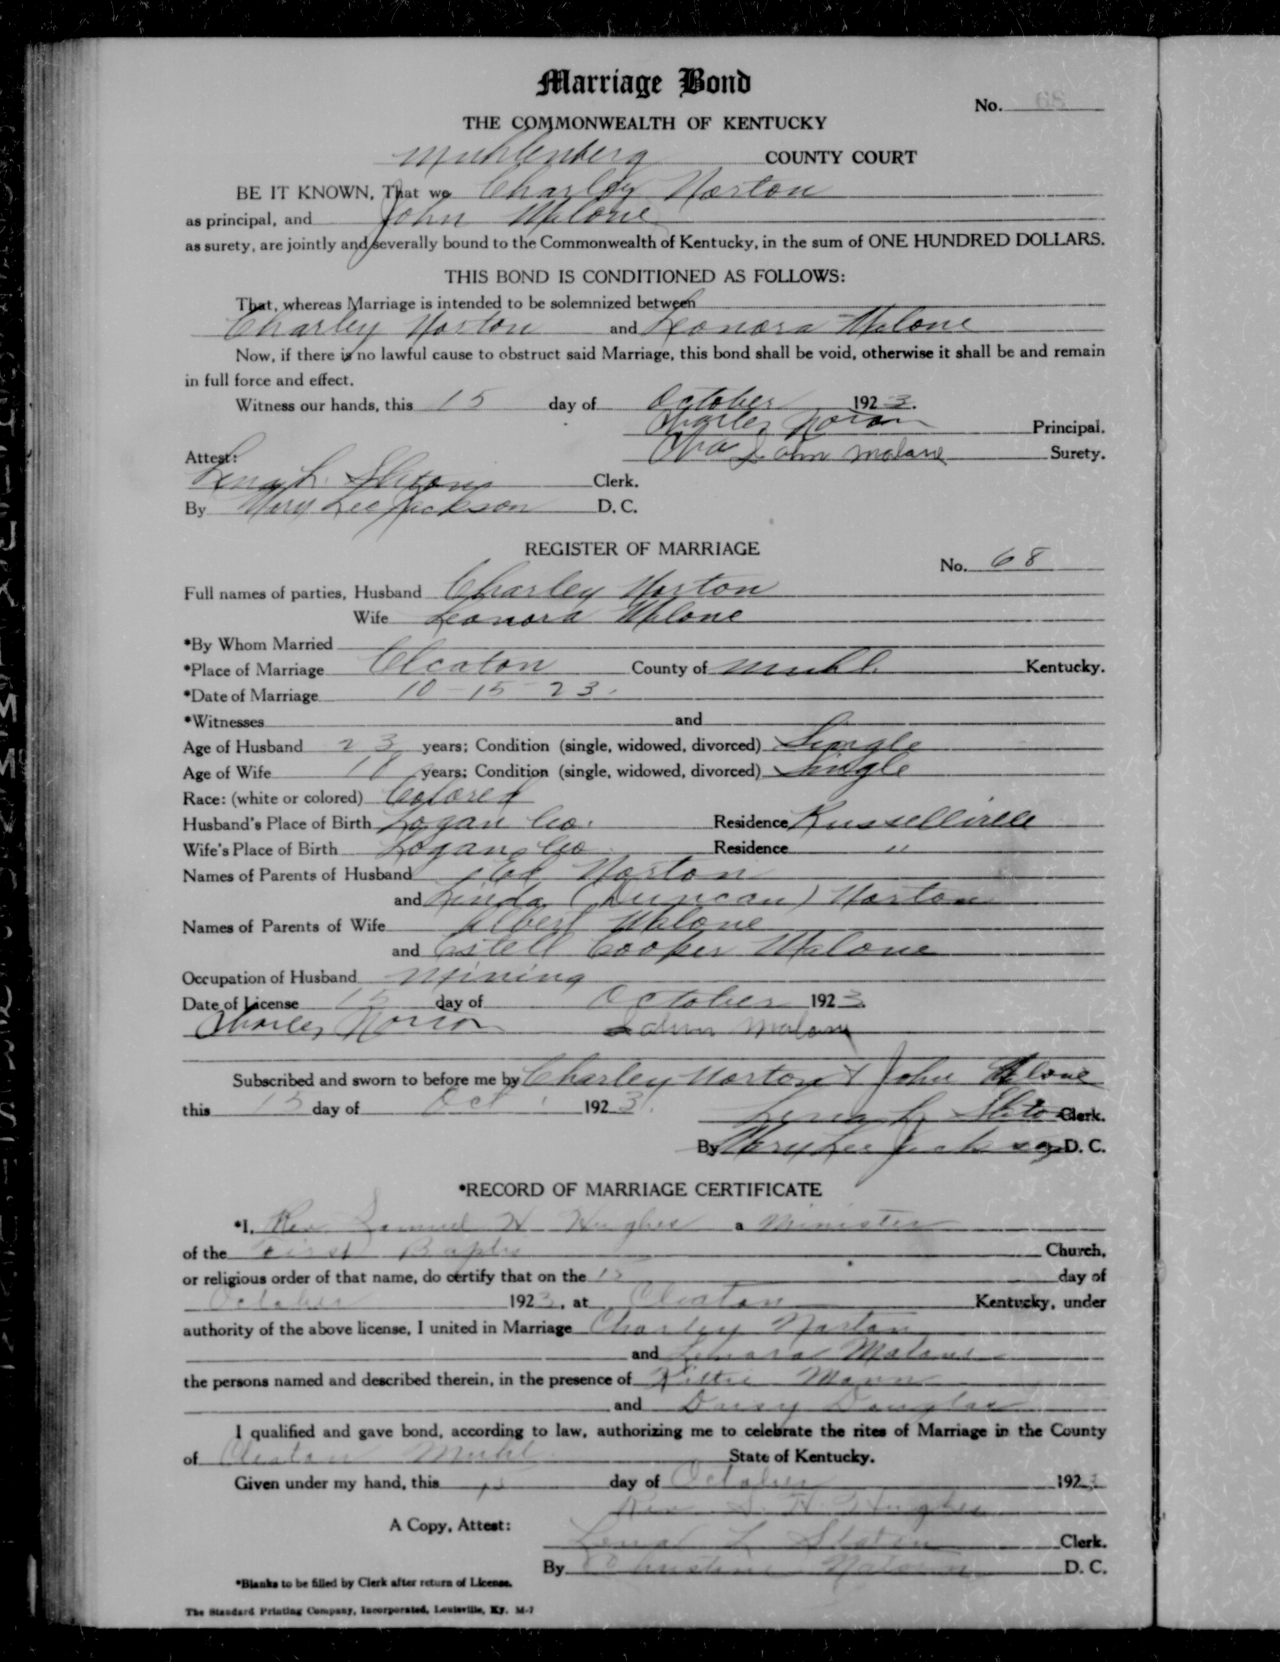 Marriage Bond
No. 68
THE COMMONWEALTH OF KENTUCKY
Muhlenberg COUNTY COURT
BE IT KNOWN, That we Charley Norton
as principal, and John Malone
as surety, are jointly and severally bound to the Commonwealth of Kentucky, in the sum of ONE HUNDRED DOLLARS.
THIS BOND IS CONDITIONED AS FOLLOWS:
That, whereas Marriage is intended to be solemnized between
Charley Norton and Leonora Malone
Now, if there is no lawful cause to obstruct said Marriage, this bond shall be void, otherwise it shall be and remain
in full force and effect.
Witness our hands, this 15 day of October 1923.
Charley Norton Principal.
John Malone Surety.
Attest:
Lena L. Clerk.
By Mary Lee Jackson D. C.
REGISTER OF MARRIAGE
No. 68
Full names of parties, Husband Charley Norton
Wife Leonora Malone
*By Whom Married
*Place of Marriage Cleaton County of Muhl. Kentucky.
*Date of Marriage 10-15-23.
*Witnesses and
Age of Husband 23 years; Condition (single, widowed, divorced) Single
Age of Wife 18 years; Condition (single, widowed, divorced) Single
Race: (white or colored) Colored
Husband's Place of Birth Logan Co. Residence Russellville
Wife's Place of Birth Logan Co. Residence "
Names of Parents of Husband Ed Norton
and Linda (Duncan) Norton
Names of Parents of Wife Albert Malone
and Estell Cooper Malone
Occupation of Husband Mining
Date of License 15 day of October 1923
Charley Norton John Malone
Subscribed and sworn to before me by Charley Norton & John Malone
this 15 day of Oct. 1923.
Lena L. Clerk.
By Mary Lee Jackson D. C.
*RECORD OF MARRIAGE CERTIFICATE
*I, Rev Samuel H Hughes a Minister
of the First Baptis Church,
or religious order of that name, do certify that on the 15 day of
October 1923, at Cleaton Kentucky, under
authority of the above license, I united in Marriage Charley Norton
and Lenora Malone
the persons named and described therein, in the presence of Mann
and Daisy Douglas
I qualified and gave bond, according to law, authorizing me to celebrate the rites of Marriage in the County
of Cleaton Muhl. State of Kentucky.
Given under my hand, this 15 day of October 1923
Rev S. H. Hughes
A Copy, Attest:
Lena L Clerk.
By Christine D. C.
*Blanks to be filled by Clerk after return of License.
The Standard Printing Company, Incorporated, Louisville, Ky. M-7